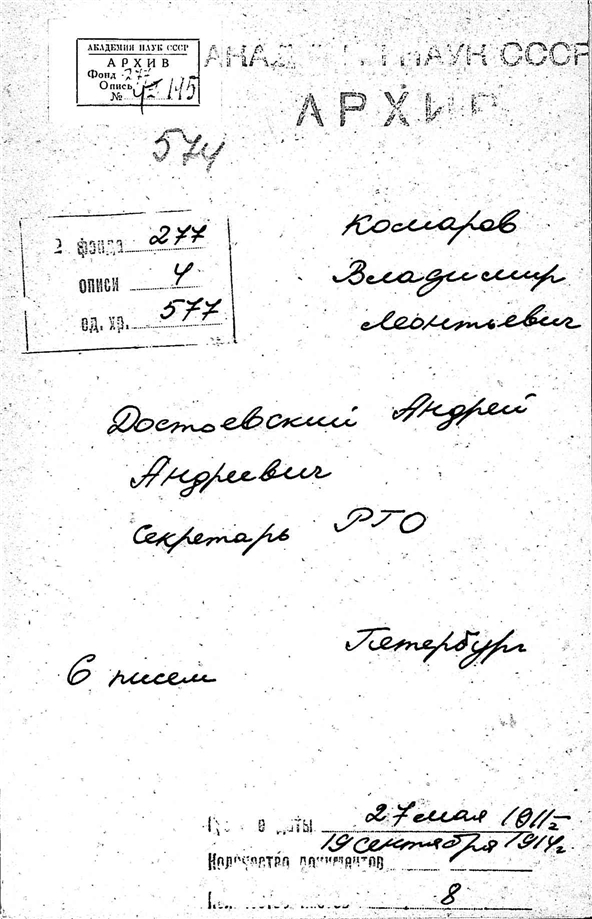 АКАДЕМИЯ НАУК СССР
АРХИВ
Фонд 277
Опись 4
№
АКАД НАУК СССР
АРХИВ
574
фонда 277
описи 4
ед. хр. 577
Комаров
Владимир
Леонтьевич
Достоевский Андрей
Андреевич
Секретарь РГО
Петербург
6 писем
даты 27 мая 1911 г
19 сентября 1914 г
Количество документов
8